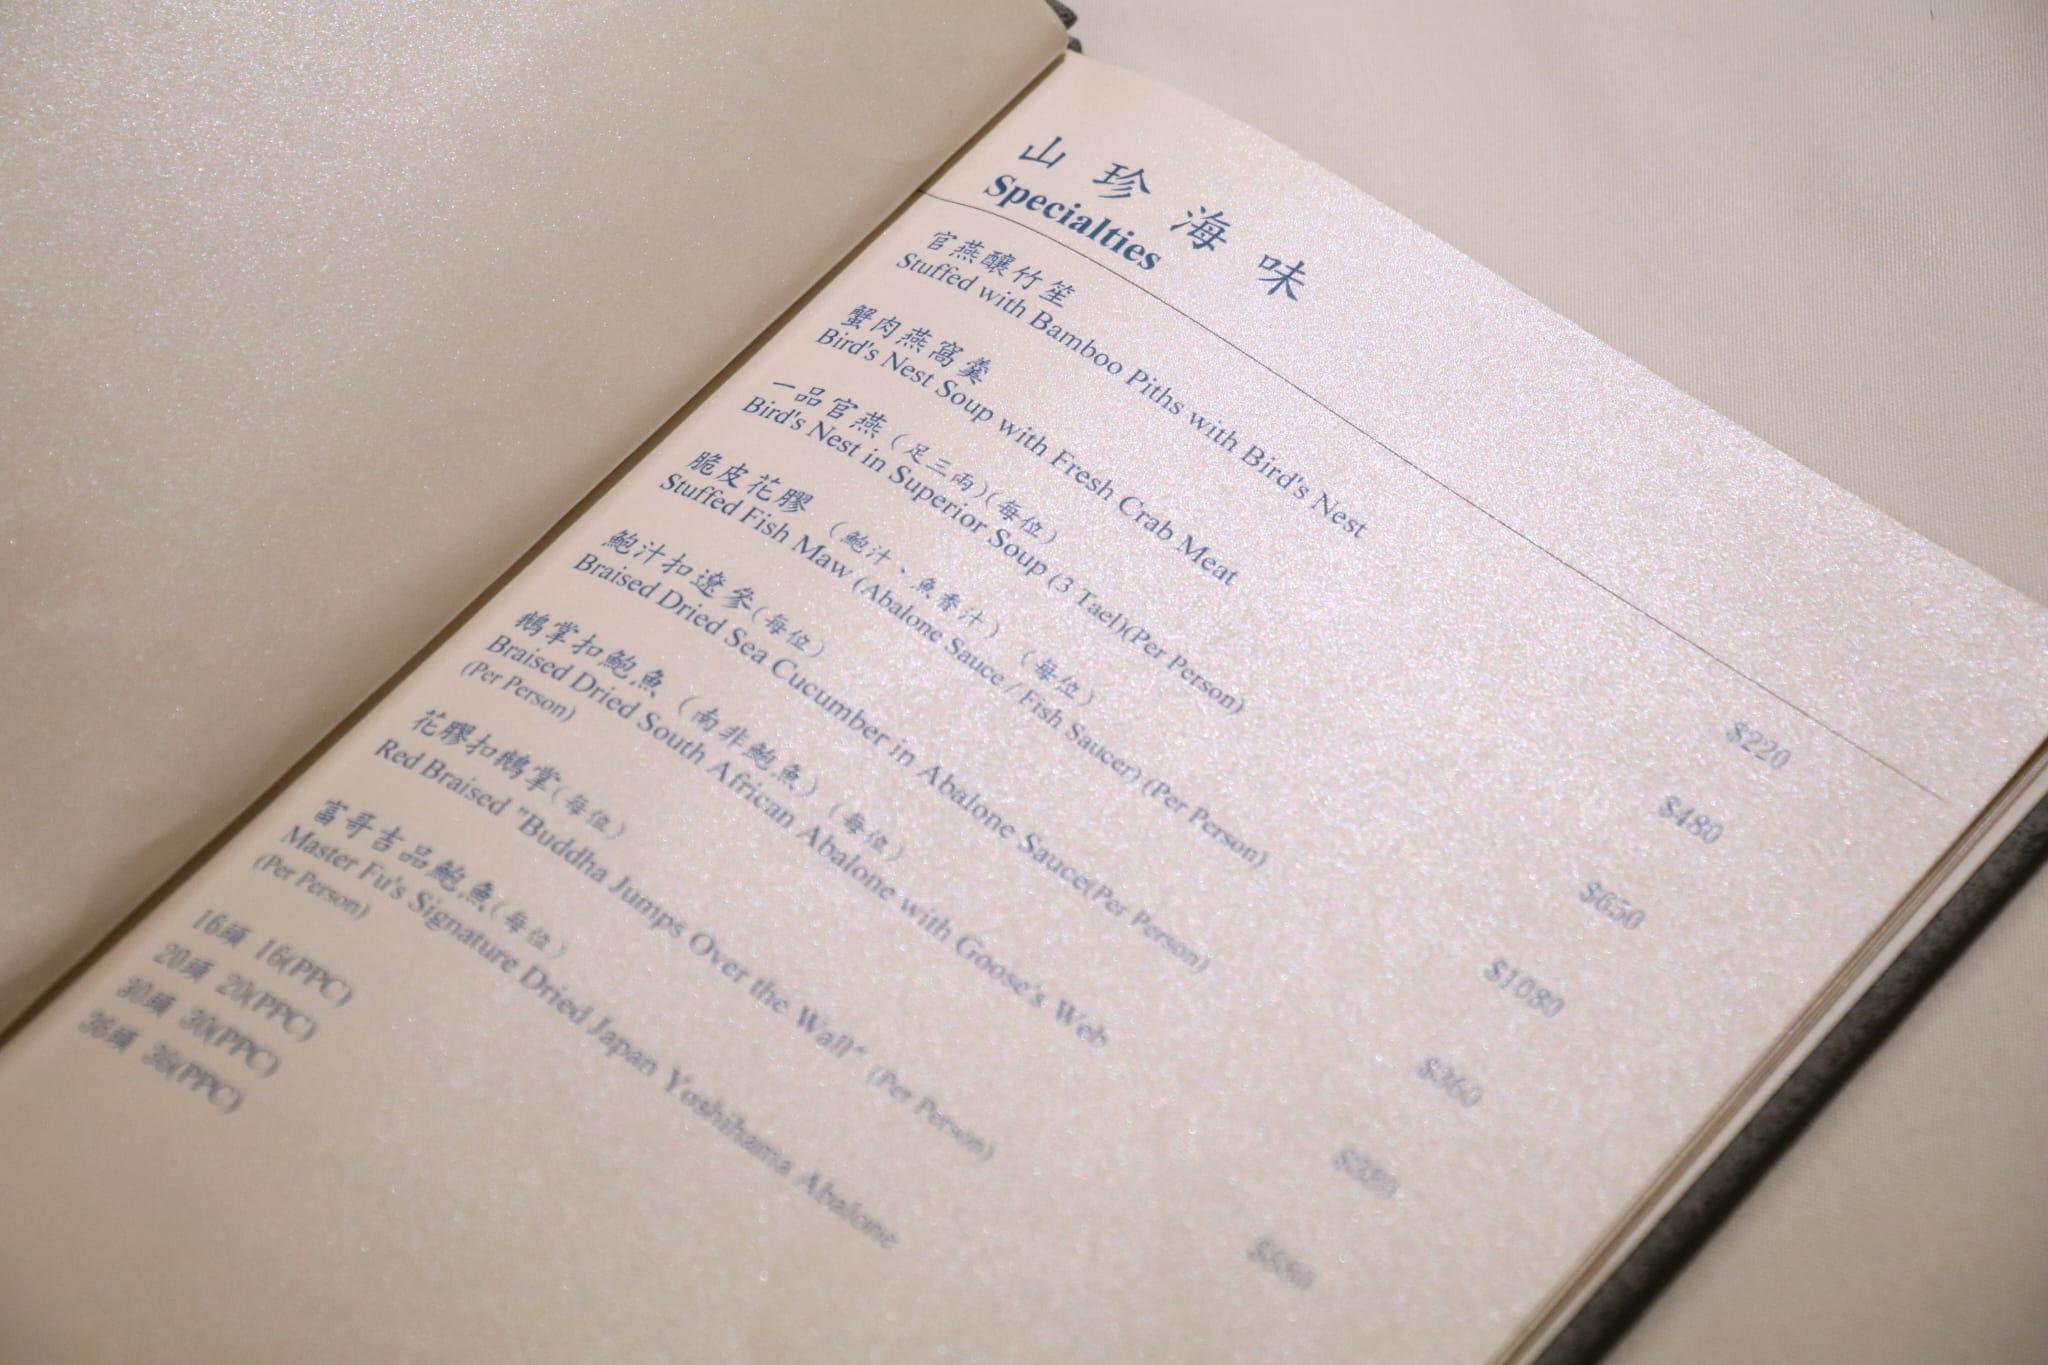 山珍海味
Specialties
官燕釀竹笙
Stuffed with Bamboo Piths with Bird's Nest $220
蟹肉燕窩羹
Bird's Nest Soup with Fresh Crab Meat $480
一品官燕（足三兩）（每位）
Bird's Nest in Superior Soup (3 Tael)(Per Person) $650
脆皮花膠（鮑汁、魚香汁）（每位）
Stuffed Fish Maw (Abalone Sauce / Fish Saucer) (Per Person) $1080
鮑汁扣遼參（每位）
Braised Dried Sea Cucumber in Abalone Sauce(Per Person) $360
鵝掌扣鮑魚（南非鮑魚）（每位）
Braised Dried South African Abalone with Goose's Web
(Per Person)
花膠扣鵝掌（每位）
Red Braised "Buddha Jumps Over the Wall" (Per Person)
富哥吉品鮑魚（每位）
Master Fu's Signature Dried Japan Yoshihama Abalone
(Per Person)
16頭 16(PPC)
20頭 20(PPC)
30頭 30(PPC)
36頭 36(PPC)